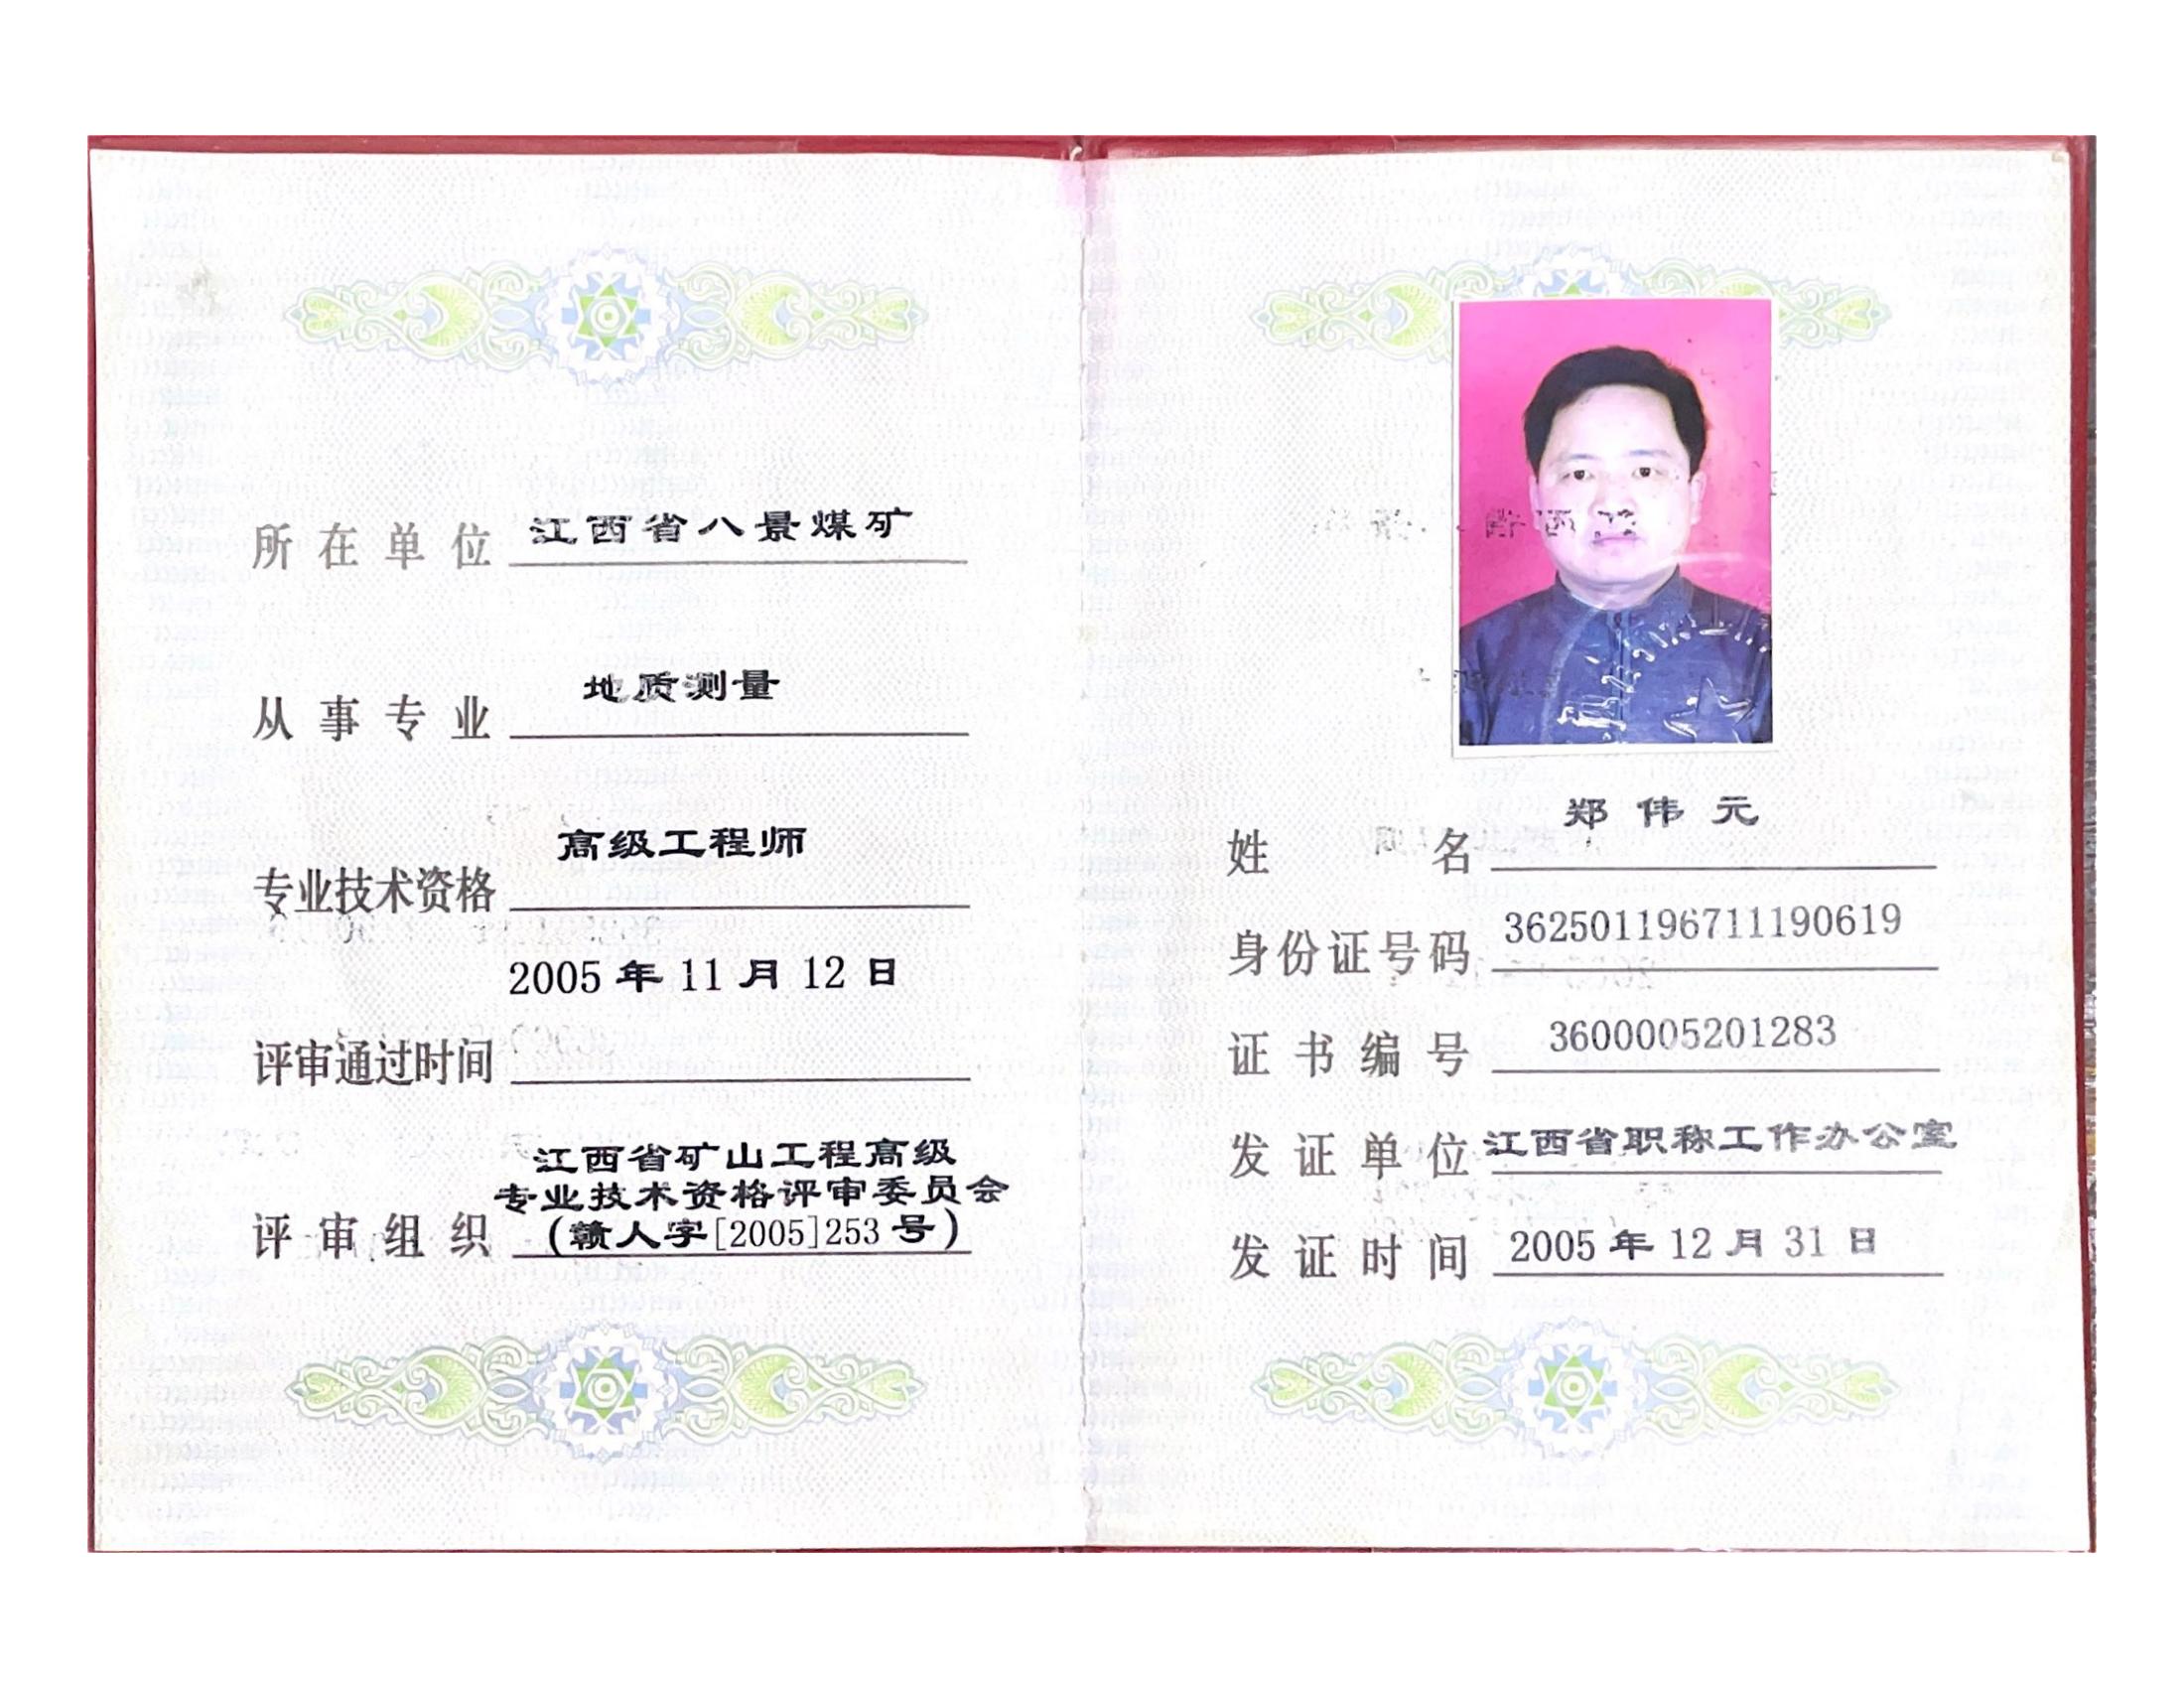 所在单位 江西省八景煤矿
从事专业 地质测量
专业技术资格 高级工程师
2005年11月12日
评审通过时间
江西省矿山工程高级
专业技术资格评审委员会
评审组织 (赣人字[2005]253号)
姓名 郑伟元
身份证号码 362501196711190619
证书编号 3600005201283
发证单位 江西省职称工作办公室
发证时间 2005年12月31日